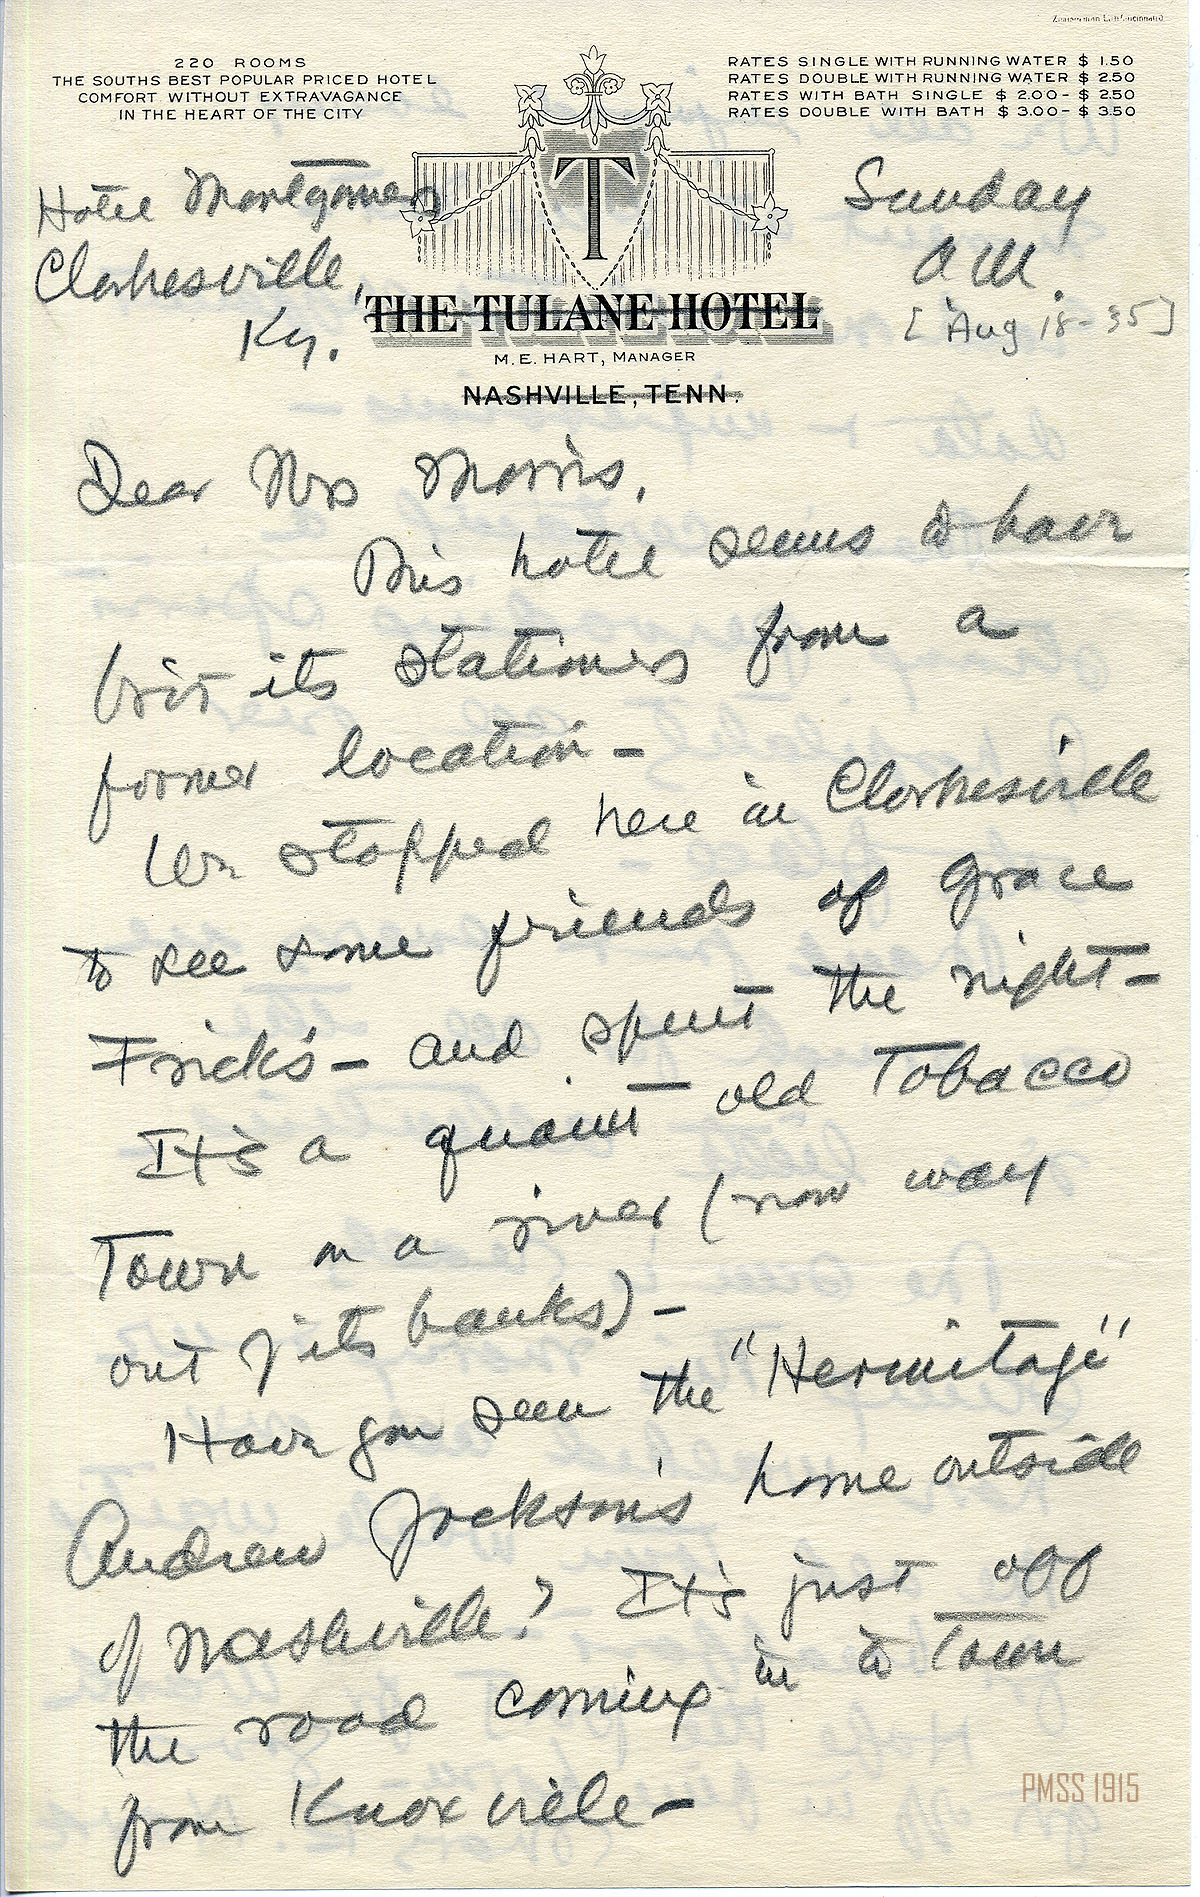 Zimmerman Li Cincinnati
220 ROOMS
THE SOUTHS BEST POPULAR PRICED HOTEL
COMFORT WITHOUT EXTRAVAGANCE
IN THE HEART OF THE CITY
RATES SINGLE WITH RUNNING WATER $ 1.50
RATES DOUBLE WITH RUNNING WATER $ 2.50
RATES WITH BATH SINGLE $ 2.00 - $ 2.50
RATES DOUBLE WITH BATH $ 3.00 - $ 3.50
T
Hotel Montgomery
Clarkesville,
Ky.
Sunday
A.M.
[Aug 18-35]
THE TULANE HOTEL
M.E. HART, MANAGER
NASHVILLE, TENN.
Dear Mrs Morris,
This hotel seems to have
its stationery from a
former location -
We stopped here in Clarkesville
to see some friends of Grace
Frick's - and spent the night -
It's a quaint old Tobacco
Town on a river (now way
out of its banks) -
Have you seen the "Hermitage"
Andrew Jackson's home outside
of Nashville? It's just off
the road coming in to Town
from Knoxville -
PMSS 1915